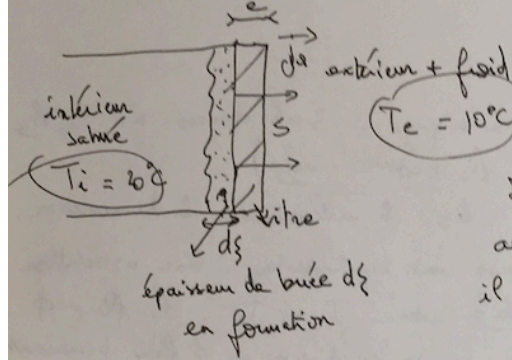 e
extérieur + froid
intérieur
saturé
S
Te = 10°C
Ti = 20°C
vitre
dξ
épaisseur de buée dξ
en formation
il